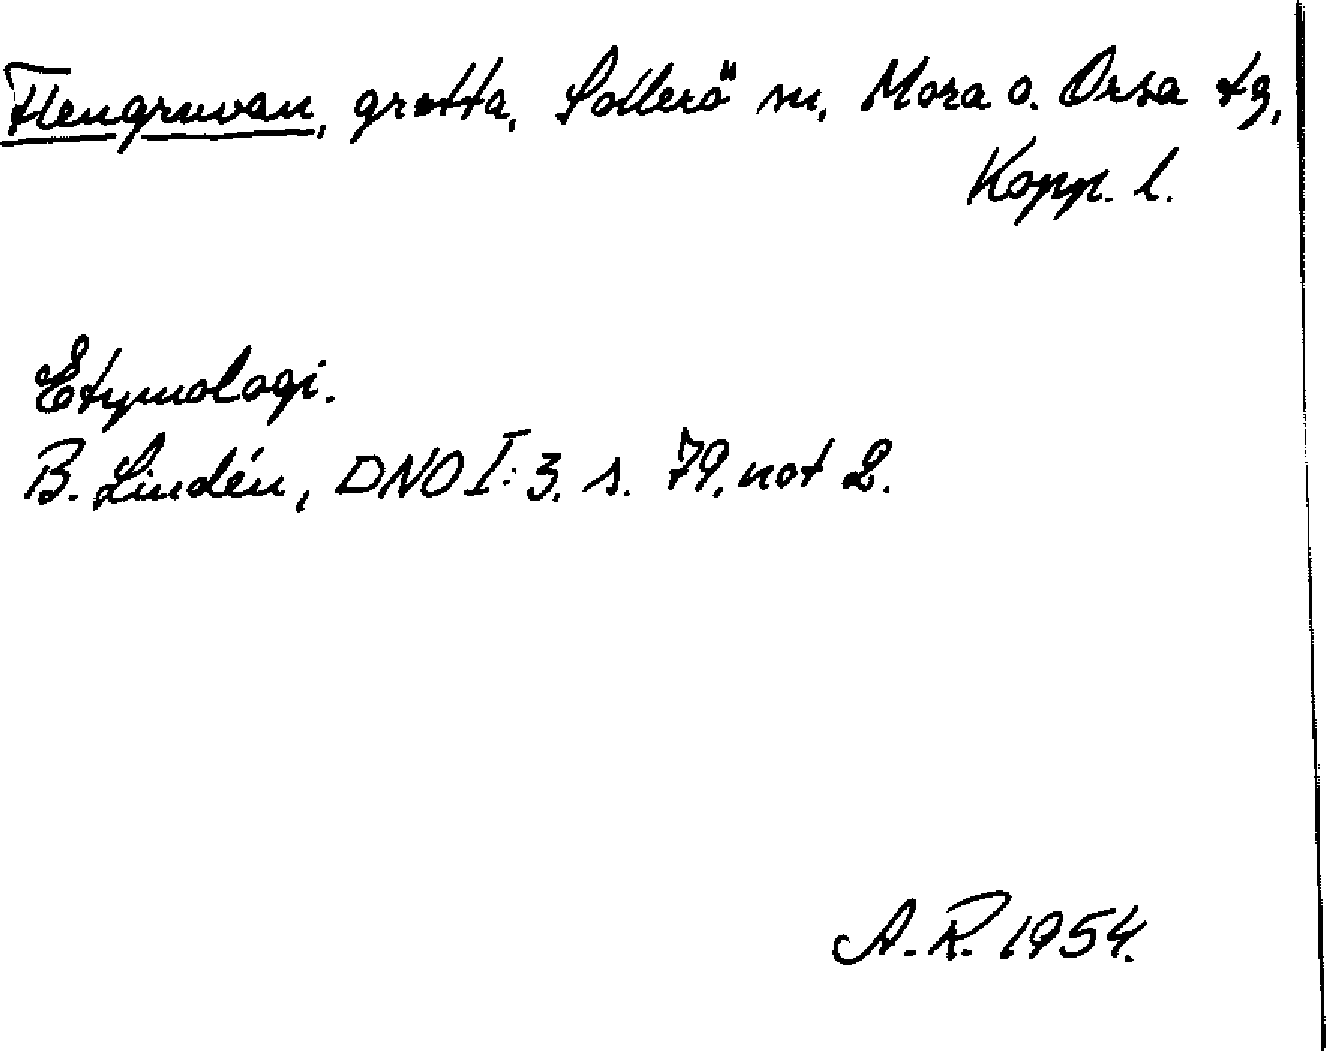 Flengruvan, grotta, Sollerö sn, Mora o. Orsa tg,
Kopp. l.
Etymologi.
B. Lindén, DNO I:3, s. 79, not 2.
A. R. 1954.